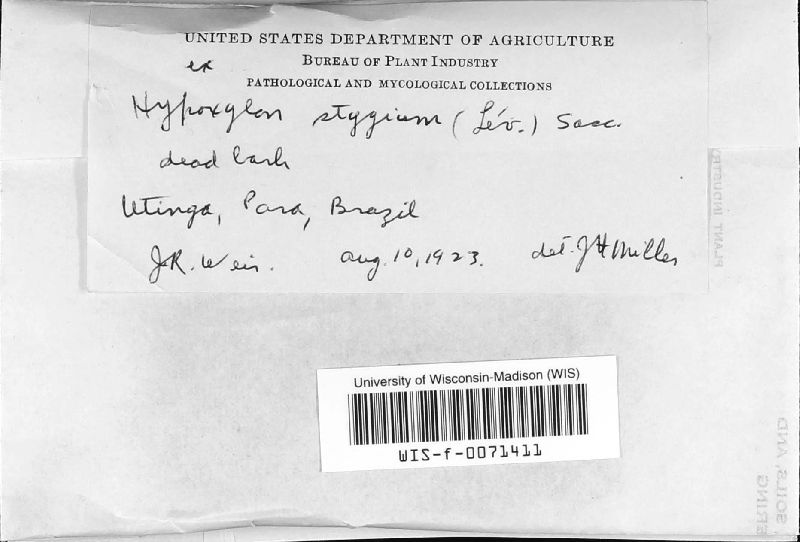 UNITED STATES DEPARTMENT OF AGRICULTURE
ex
BUREAU OF PLANT INDUSTRY
PATHOLOGICAL AND MYCOLOGICAL COLLECTIONS
Hypoxylon stygium (Lév.) Sacc.
dead bark
Utinga, Para, Brazil
J.R. Weir. Aug. 10, 1923. det. J H Miller
PLANT INDUSTRY
University of Wisconsin-Madison (WIS)
WIS-f-0071411
SOILS, AND
ERING